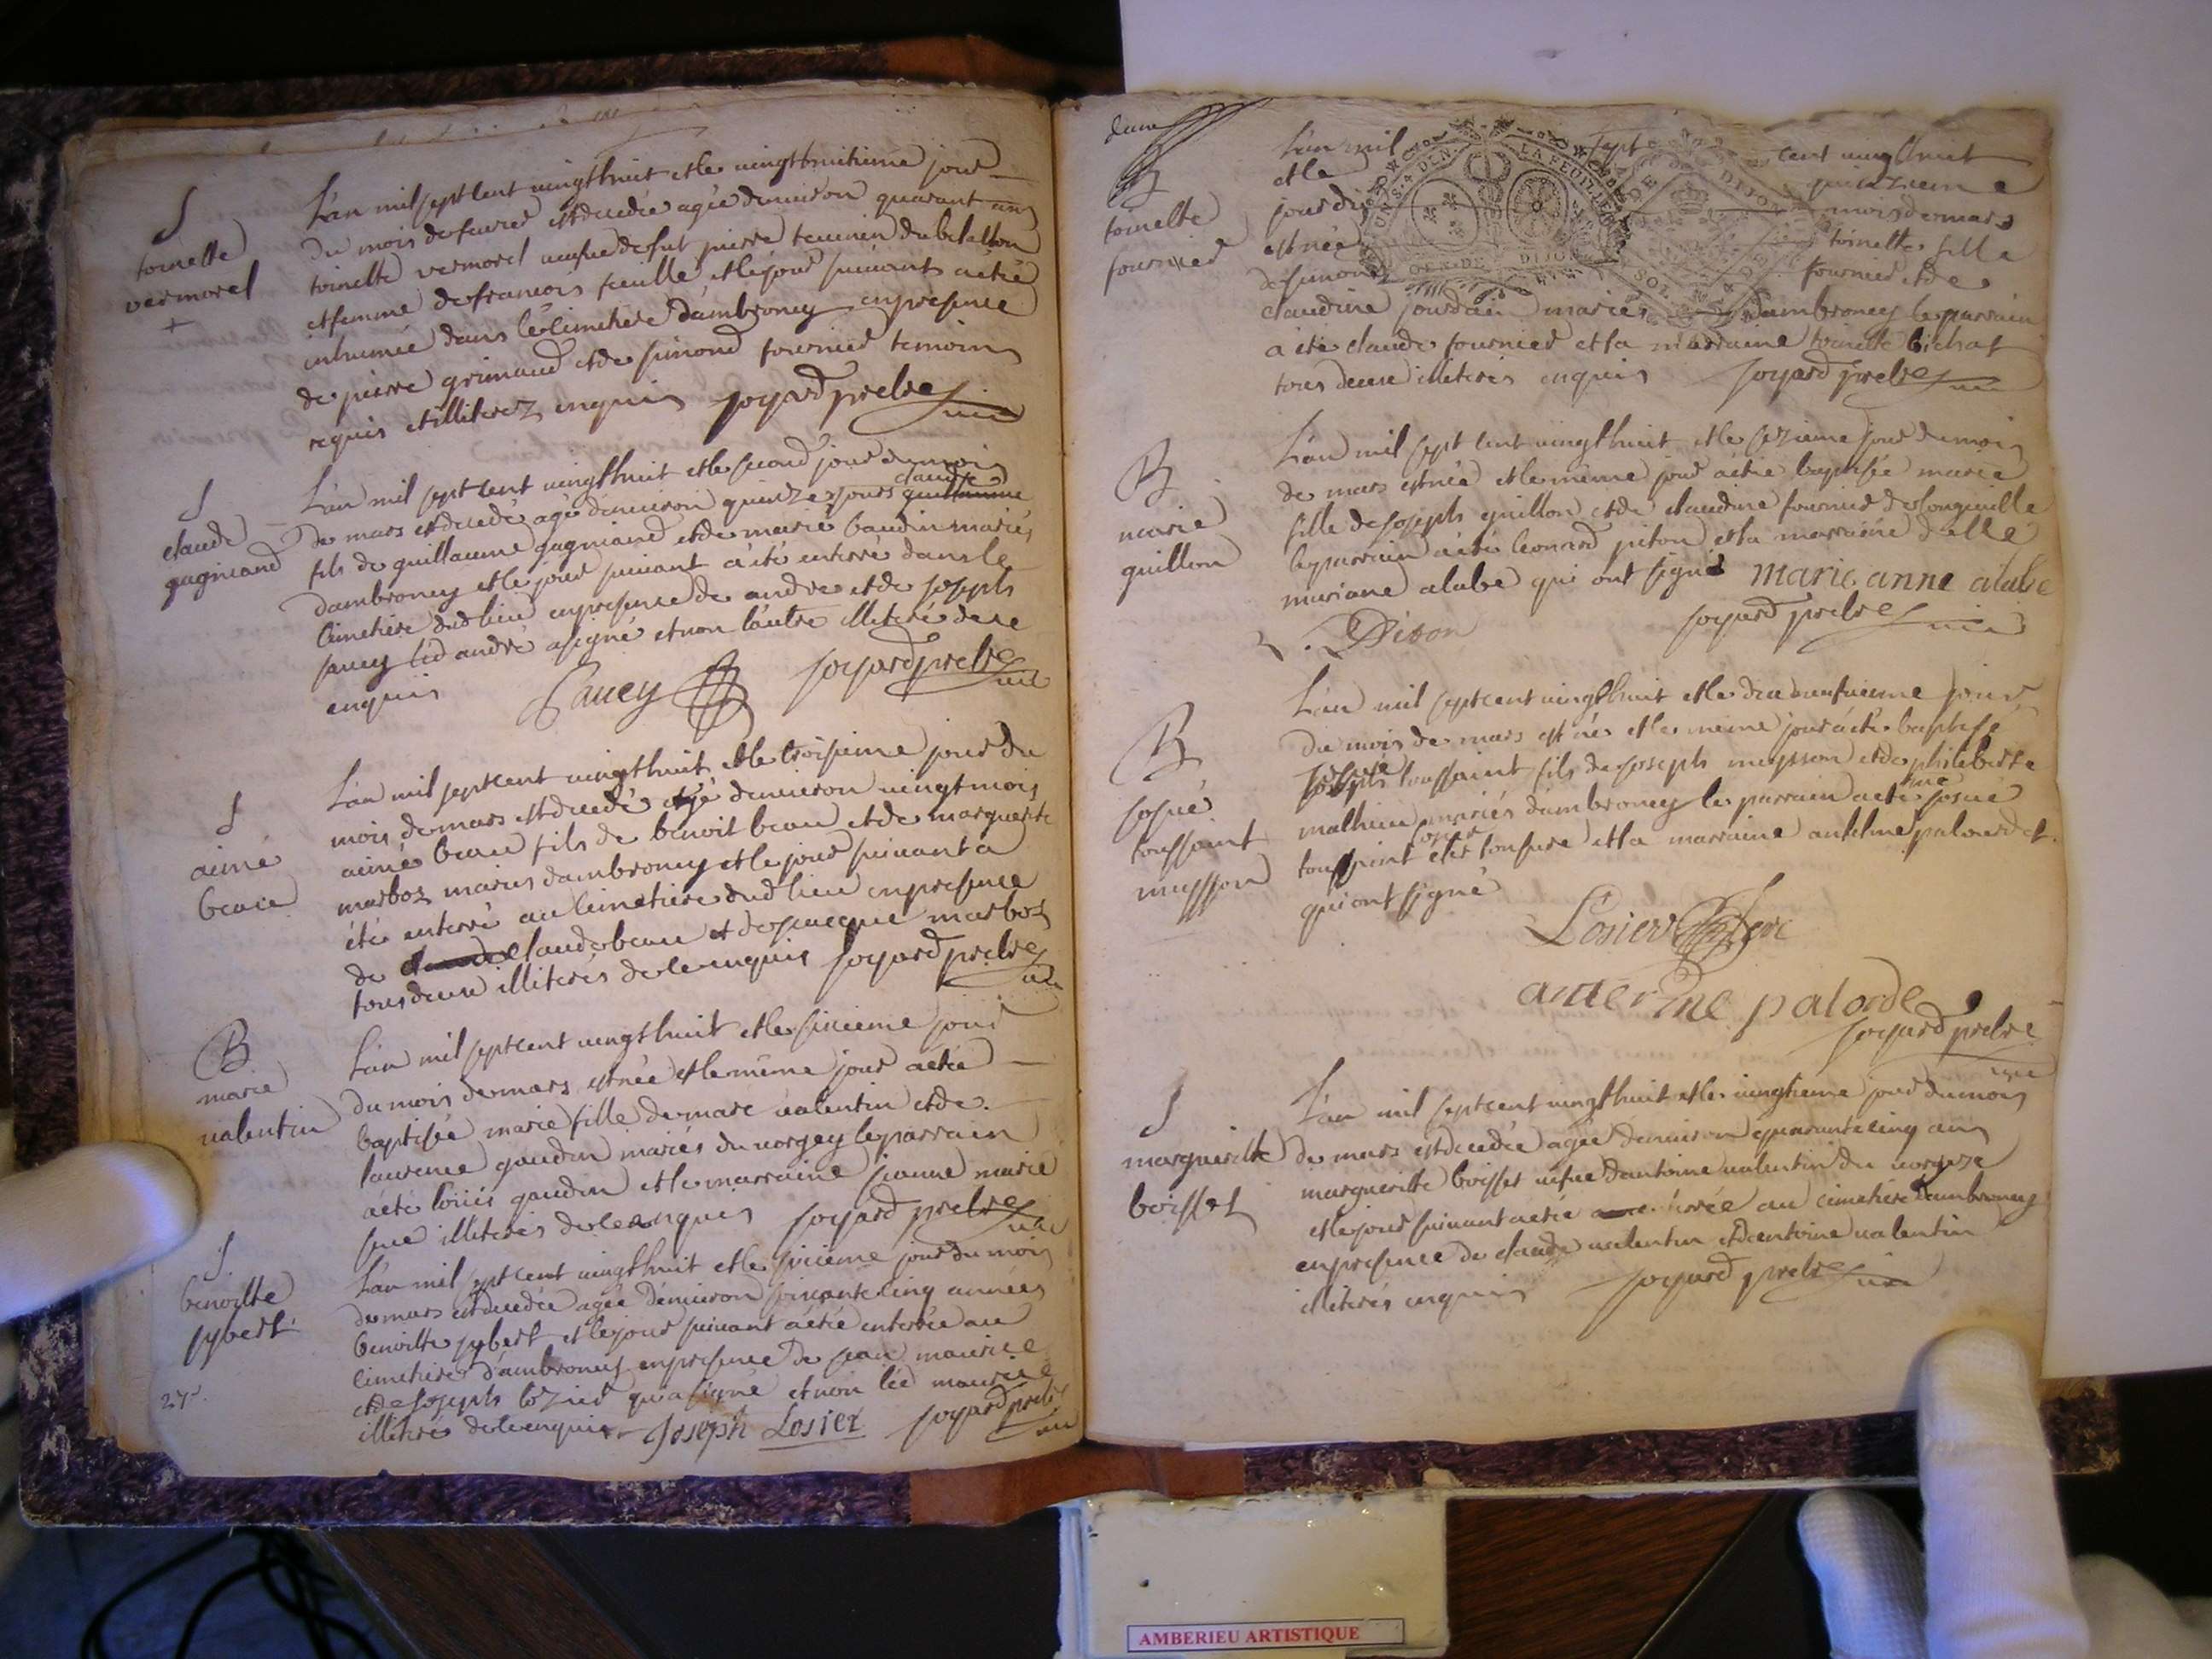 S
toinette
vermorel
+
L'an mil sept cent vingthuit et le vingthuitieme jour
du mois de fevrier est decedée agée denviron quarant ans
toinette vermorel veufve de fut pierre
et femme de francois feuille et le jour suivant a été
inhumée dans le cimetiere dambroney en presence
de pierre grimaud et de simond fournier temoins
requis et illiterez enquis soyard prebre vic
S
claude
gagniand
L'an mil sept cent vingthuit et le second jour du mois
claude
de mars est decedé agé denviron quinze jours guillaume
fils de guillaume gagniand et de marie baudin mariés
dambroney et le jour suivant a été enterré dans le
cimetiere dud lieu en presence de andre et de joseph
sauey led andré a signé et non lautre illiteré de ce
enquis Sauey soyard prebre vic
S
aimé
beau
L'an mil sept cent vingthuit et le troisieme jour du
mois de mars est decedé agé denviron vingt mois
aimé beau fils de benoit beau et de marguerite
marboz mariés dambroney et le jour suivant a
été enterré au cimetiere dud lieu en presence
de claude beau et de jacque marboz
tous deux illiterés de ce enquis soyard prebre vic
B
marie
valentin
L'an mil sept cent vingthuit et le sixieme jour
du mois de mars est née et le même jour a été
baptisée marie fille de marc valentin et de
laurence gaudin mariés du vorgey le parrain
a été loüis gaudin et la marraine jeanne marie
illiterés de ce enquis soyard prebre vic
S
benoitte
jybert
L'an mil sept cent vingthuit et le sixieme jour du mois
de mars est decedée agée denviron soixante cinq années
benoitte jybert et le jour suivant a été enterrée au
cimetiere d'ambroney en presence de jean maurice
et de joseph lozier qui a signé et non led maurice
illiteré de ce enquis Joseph Losier soyard prebre vic
B
toinette
fournier
L'an mil sept cent vingthuit
et le quinzieme
jour du mois de mars
est née toinette fille
de simond fournier et de
claudine jourdain mariés dambroney le parrain
a été claude fournier et la marraine toinette bichat
tous deux illiterés enquis soyard prebre vic
LA FEUILLE
GEN. DE DIJON
SOL
B
marie
guillon
L'an mil sept cent vingthuit et le sezieme jour du mois
de mars est née et le même jour a été baptisée marie
fille de joseph guillon et de claudine fournier de longeville
le parrain a été leonard piton et la marraine delle
mariane alabe qui ont signé marie anne alabe
soyard prebre vic
B
josué
toussaint
musson
L'an mil sept cent vingthuit et le dix neufvieme jour
du mois de mars est né et le meme jour a été baptisé
josué toussaint fils de joseph musson et de philiberte
mathieu mariés dambroney le parrain a été josué
toussaint losier clerc tonsuré et la marraine antelme palourdet
qui ont signé
Losier clerc
antermme palorde
soyard prebre
vic
S
marguerite
boisset
L'an mil sept cent vingthuit et le vingtieme jour du mois
de mars est decedée agée denviron quarante cinq ans
marguerite boisset vefve dantoine valentin du vorgeze
et le jour suivant a été enterrée au cimetiere dambroney
en presence de claude valentin et dantoine valentin
illiterés enquis soyard prebre vic
AMBERIEU ARTISTIQUE